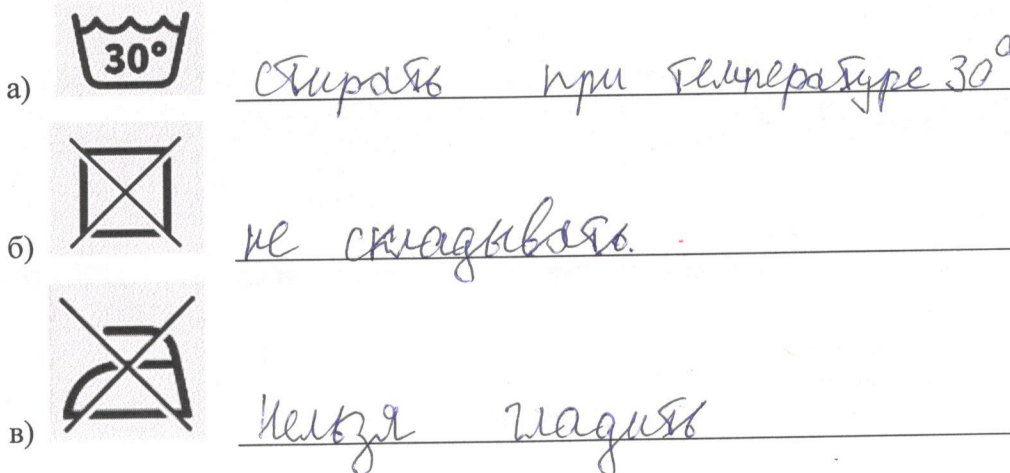 30°
а) стирать при температуре 30°
б) не складывать.
в) Нельзя гладить